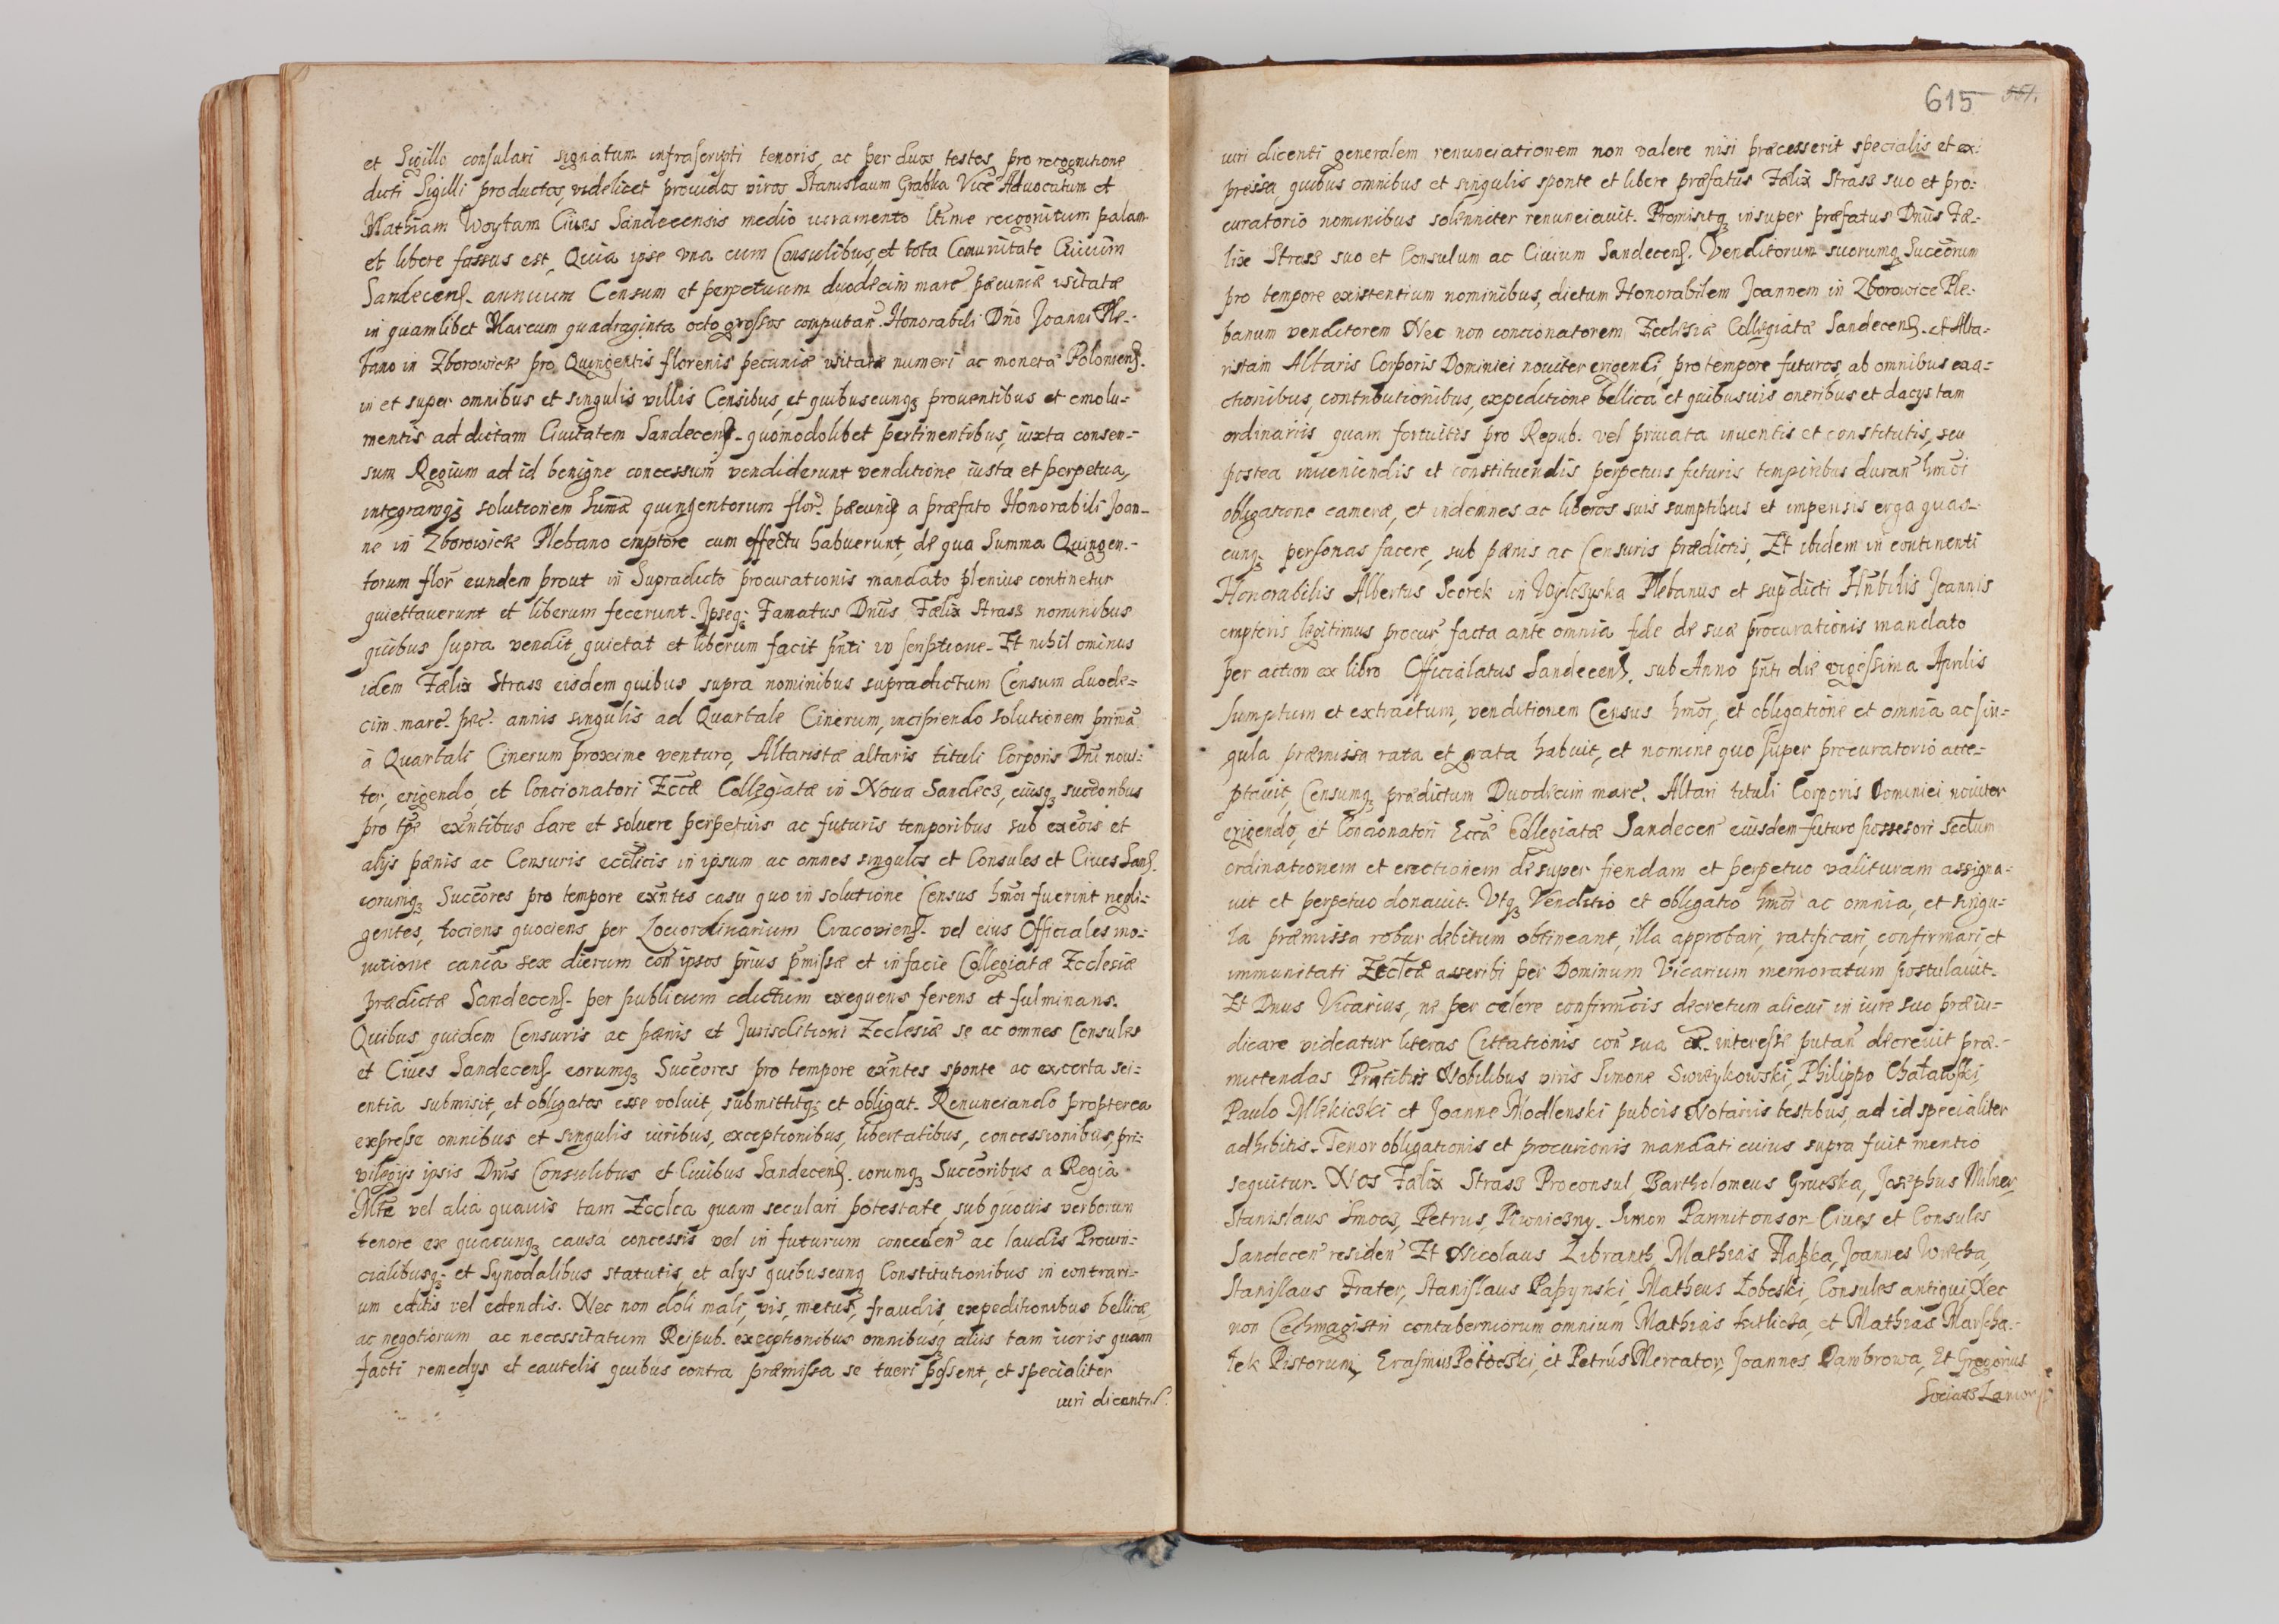 et Sigillo consulari signatum infrascripti tenoris, ac per duos testes, pro recognitione
dicti Sigilli productos, videlicet providos viros Stanislaum Grabka Vice Advocatum et
Mathiam Woytam Cives Sandecensis medio iuramento ltime recognitum palam
et libere fassus est, Quia ipse vna cum Consulibus, et tota Comunitate Civium
Sandecens. annuum Censum et perpetuum duodecim marc pæcuniæ vsitatæ
in quamlibet Marcum quadraginta octo grossos computan. Honorabili Dno Joanni Ple-
bano in Zborowice pro Quingentis florenis pecuniæ vsitatæ numeri ac monetæ Poloniens.
in et super omnibus et singulis villis Censibus, et quibuscunq3 proventibus et emolu-
mentis ad dictam Civitatem Sandecens. quomodolibet pertinentibus, iuxta consen-
sum Regium ad id benigne concessum vendiderunt venditione iusta et perpetua,
integramq3 solutionem Summæ quingentorum flor. pæcuniæ a præfato Honorabili Joan-
ne in Zborowice Plebano emptore cum effectu habuerunt, de qua Summa Quingen-
torum flor eundem prout in Supradicto procurationis mandato plenius continetur
quiettaverunt et liberum fecerunt. Ipseq3 Famatus Dnus Fælix Strass nominibus
quibus supra vendit, quietat et liberum facit pnti in scriptione. Et nihil ominus
idem Fælix Strass eisdem quibus supra nominibus supradictum Censum duode-
cim marc. pec. annis singulis ad Quartale Cinerum, incipiendo solutionem prima
à Quartali Cinerum proxime venturo, Altaristæ altaris tituli Corporis Dni novi-
ter, erigendo, et Concionatori Eccæ Collegiatæ in Nova Sandecz, eiusq3 succoribus
pro tpe exntibus dare et solvere perpetuis ac futuris temporibus sub excois et
alys pænis ac Censuris ecclicis in ipsum ac omnes singulos et Consules et Cives Sand.
eorumq3 Succores pro tempore exntes casu quo in solutione Census hmoi fuerint negli-
gentes, tociens quociens per Loci ordinarium Cracoviens. vel eius Officiales mo-
nitione canca sex dierum con ipsos prius pmissæ et in facie Collegiatæ Ecclesiæ
prædictæ Sandecens. per publicum edictum exequens ferens et fulminans.
Quibus quidem Censuris ac pænis et Jurisditioni Ecclesiæ se ac omnes Consules
et Cives Sandecens. eorumq3 Succores pro tempore exntes sponte ac ex certa sci-
entia submisit, et obligatos esse voluit, submittitq3 et obligat. Renunciando propterea
expresse omnibus et singulis iuribus, exceptionibus, libertatibus, concessionibus, pri-
vilegys ipsis Dnis Consulibus et Civibus Sandecens. eorumq3 Succoribus a Regia
Mte vel alia quavis tam Ecclca quam seculari potestate, sub quovis verborum
tenore ex quacunq3 causa concessis vel in futurum conceden ac laudis Provin-
cialibusq3 et Synodalibus statutis, et alys quibuscunq Constitutionibus in contrari-
um editis vel edendis. Nec non doli mali, vis, metus, fraudis, expeditionibus bellicæ,
ac negotiorum ac necessitatum Reipub. exceptionibus omnibusq3 aliis tam iuris quam
facti remedys et cautelis quibus contra præmissa se tueri possent, et specialiter
iuri dicenti
615 551.
iuri dicenti generalem renunciationem non valere nisi præcesserit specialis et ex-
pressa, quibus omnibus et singulis sponte et libere præfatus Fælix Strass suo et pro-
curatorio nominibus solenniter renunciavit. Promisitq3 insuper præfatus Dnus Fæ-
lix Strass suo et Consulum ac Civium Sandecens. Venditorum suorumq3 Succorum
pro tempore existentium nominibus, dictum Honorabilem Joannem in Zborowice Ple-
banum venditorem Nec non concionatorem Ecclesiæ Collegiatæ Sandecens. et Alta-
ristam Altaris Corporis Dominici noviter erigendi, pro tempore futuros, ab omnibus exa-
ctionibus, contributionibus, expeditione bellica et quibusvis oneribus et dacys tam
ordinariis quam fortuitis pro Repub. vel privata inventis et constitutis, seu
postea inveniendis et constituendis perpetuis futuris temporibus duran hmoi
obligatione cameræ, et indemnes ac liberos suis sumptibus et impensis erga quas-
cunq3 personas facere, sub pænis ac Censuris prædictis. Et ibidem in continenti
Honorabilis Albertus Scorek in Wylczyska Plebanus et supdicti Hnbilis Joannis
emptoris legitimus procur facta ante omnia fide de suæ procurationis mandato
per action ex libro Officialatus Sandecens. sub Anno pnti die vigessima Aprilis
sumptum et extractum, venditionem Census hmoi, et obligatione et omnia ac sin-
gula præmissa rata et grata habuit, et nomine quo super procuratorio acce-
ptavit, Censumq3 prædictum Duodecim marc. Altari tituli Corporis Dominici noviter
erigendo, et Concionatori Eccæ Collegiatæ Sandecen eiusdem futuro possesori sectum
ordinationem et erectionem de super fiendam et perpetuo valituram assigna-
vit et perpetuo donavit. Vtq3 Venditio et obligatio hmoi ac omnia, et singu-
la præmissa robur debitum obtineant, illa approbari, ratificari, confirmari et
immunitati Ecclcæ asscribi per Dominum Vicarium memoratum postulavit.
Et Dnus Vicarius, ne per celere confirmcis decretum alicui in iure suo præiu-
dicare videatur literas Cittationis con sua interesse putan decrevit præ-
mittendas Prntibus Nobilibus viris Simone Swieykowski, Philippo Chaławski,
Paulo Mlekiczki et Joanne Modlenski pubcis Notariis testibus, ad id specialiter
adhibitis. Tenor obligationis et procurionis mandati cuius supra fuit mentio
sequitur. Nos Fælix Strass Proconsul, Bartholomeus Gruczka, Josephus Milner,
Stanislaus Smocz, Petrus, Piwniczny. Simon Pannitonsor Cives et Consules
Sandecen residen Et Nicolaus Libranth, Mathias Flaszka, Joannes Wiecha,
Stanislaus Frater, Stanislaus Papynski, Matheus Łobeski, Consules antiqui Nec
non Cechmagistri contuberniorum omnium Mathias Kutlicza, et Mathias Marscha-
łek Pistorum, Erasmus Potoczki, et Petrus Mercator, Joannes Dambrowa, Et Gregorius